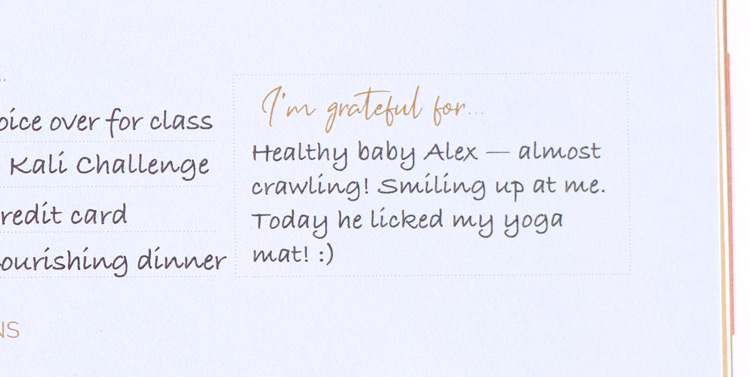 oice over for class
Kali Challenge
redit card
ourishing dinner
NS
I'm grateful for...
Healthy baby Alex — almost
crawling! Smiling up at me.
Today he licked my yoga
mat! :)